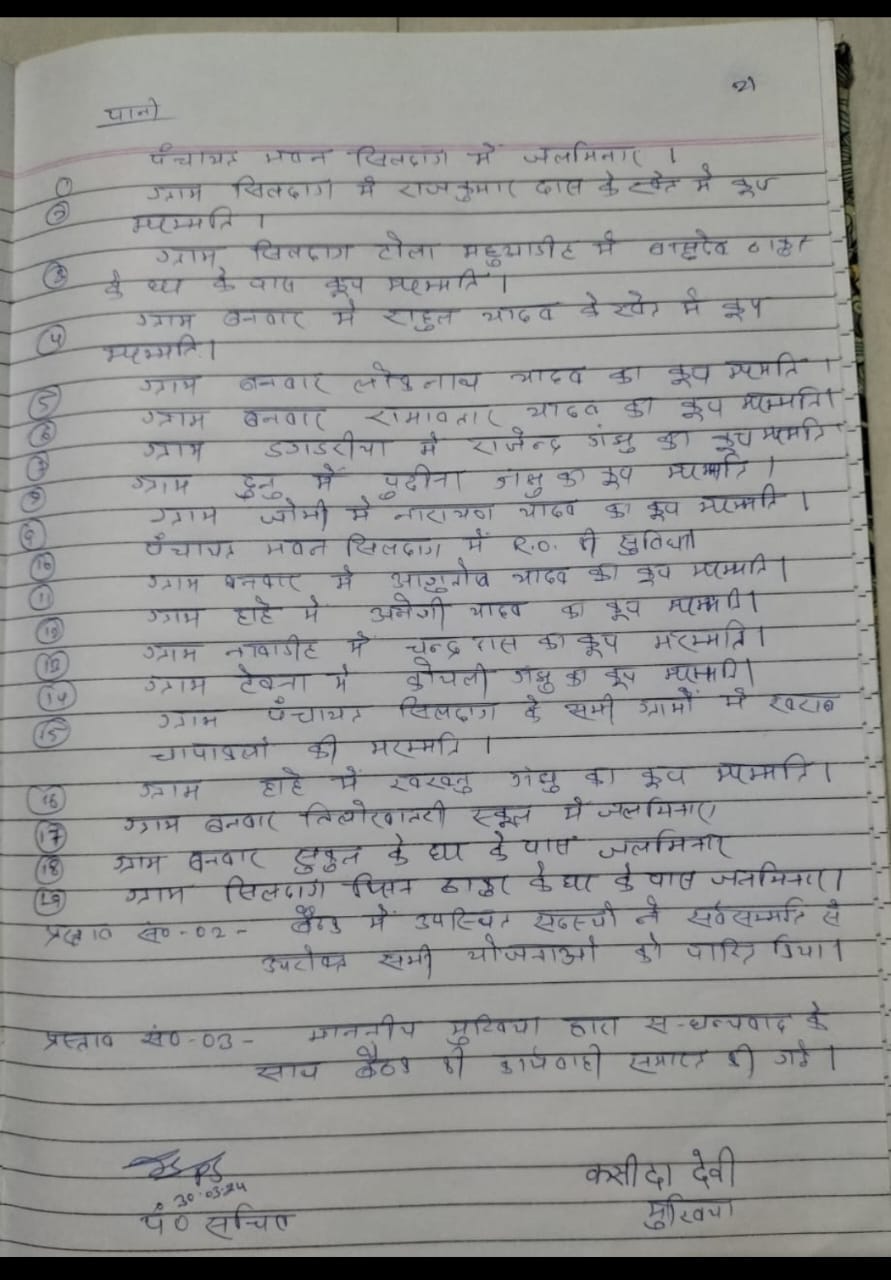 21
पानी
① पंचायत भवन सिलदाग में जलमिनार ।
② ग्राम सिलदाग में राजकुमार दास के खेत में कूप
मरम्मति ।
③ ग्राम सिलदाग टोला महुयाडीह में वासुदेव ठाकुर
के घर के पास कूप मरम्मति ।
④ ग्राम बनवार में राहुल यादव के खेत में कूप
मरम्मति ।
⑤ ग्राम बनवार लोकनाथ यादव का कूप मरम्मति ।
⑥ ग्राम बनवार रामावतार यादव का कूप मरम्मति ।
⑦ ग्राम डगडरीया में राजेन्द्र गंझु का कूप मरम्मति
⑧ ग्राम में गंझु का कूप मरम्मति ।
⑨ ग्राम जोभी में नारायण यादव का कूप मरम्मति ।
⑩ पंचायत भवन सिलदाग में R.O. की सुविधा
⑪ ग्राम बनवार में आशुतोष यादव का कूप मरम्मति ।
⑫ ग्राम हाहे में यादव का कूप मरम्मति ।
⑬ ग्राम नावाडीह में चन्द्र दास का कूप मरम्मति ।
⑭ ग्राम में गंझु का कूप मरम्मति ।
⑮ ग्राम पंचायत सिलदाग के सभी ग्रामों में खराब
चापाकलों की मरम्मति ।
⑯ ग्राम हाहे में गंझु का कूप मरम्मति ।
⑰ ग्राम बनवार स्कूल में जलमिनार
⑱ ग्राम बनवार के घर के पास जलमिनार
⑲ ग्राम सिलदाग ठाकुर के घर के पास जलमिनार ।
प्रस्ताव सं०-02- बैठक में उपस्थित सदस्यों ने सर्वसम्मति से
उपरोक्त सभी योजनाओं को पारित किया ।
प्रस्ताव सं०-03- माननीय मुखिया द्वारा स-धन्यवाद के
साथ बैठक की कार्यवाही समाप्त की गई ।
30.03.24
पं० सचिव
कसीदा देवी
मुखिया